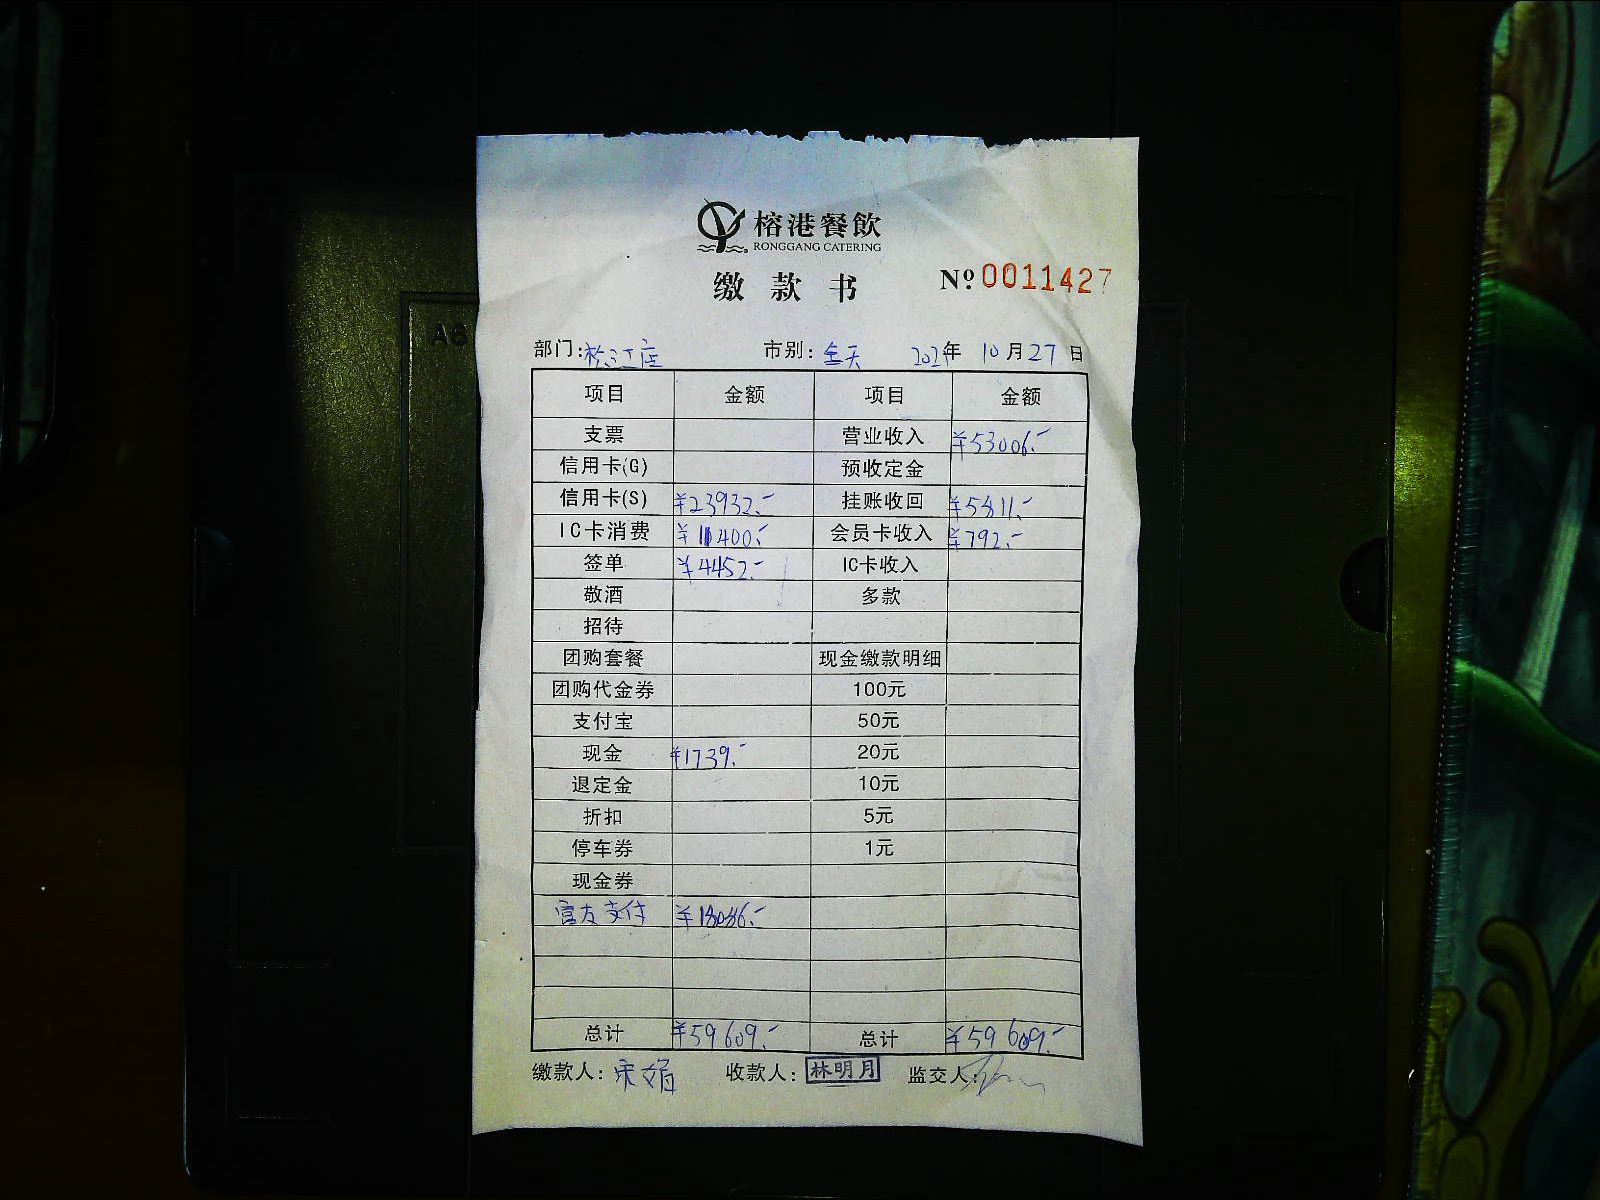 A6
榕港餐飲
RONGGANG CATERING
缴款书 Nº 0011427
部门:松江店 市别:全天 2021年 10月27日
项目 金额 项目 金额
支票 营业收入 ¥53006.-
信用卡(G) 预收定金
信用卡(S) ¥23932.- 挂账收回 ¥5811.-
IC卡消费 ¥11400.- 会员卡收入 ¥792.-
签单 ¥4452.- IC卡收入
敬酒 多款
招待
团购套餐 现金缴款明细
团购代金券 100元
支付宝 50元
现金 ¥1739.- 20元
退定金 10元
折扣 5元
停车券 1元
现金券
官方支付 ¥18086.-
总计 ¥59609.- 总计 ¥59609.-
缴款人: 收款人:林明月 监交人: